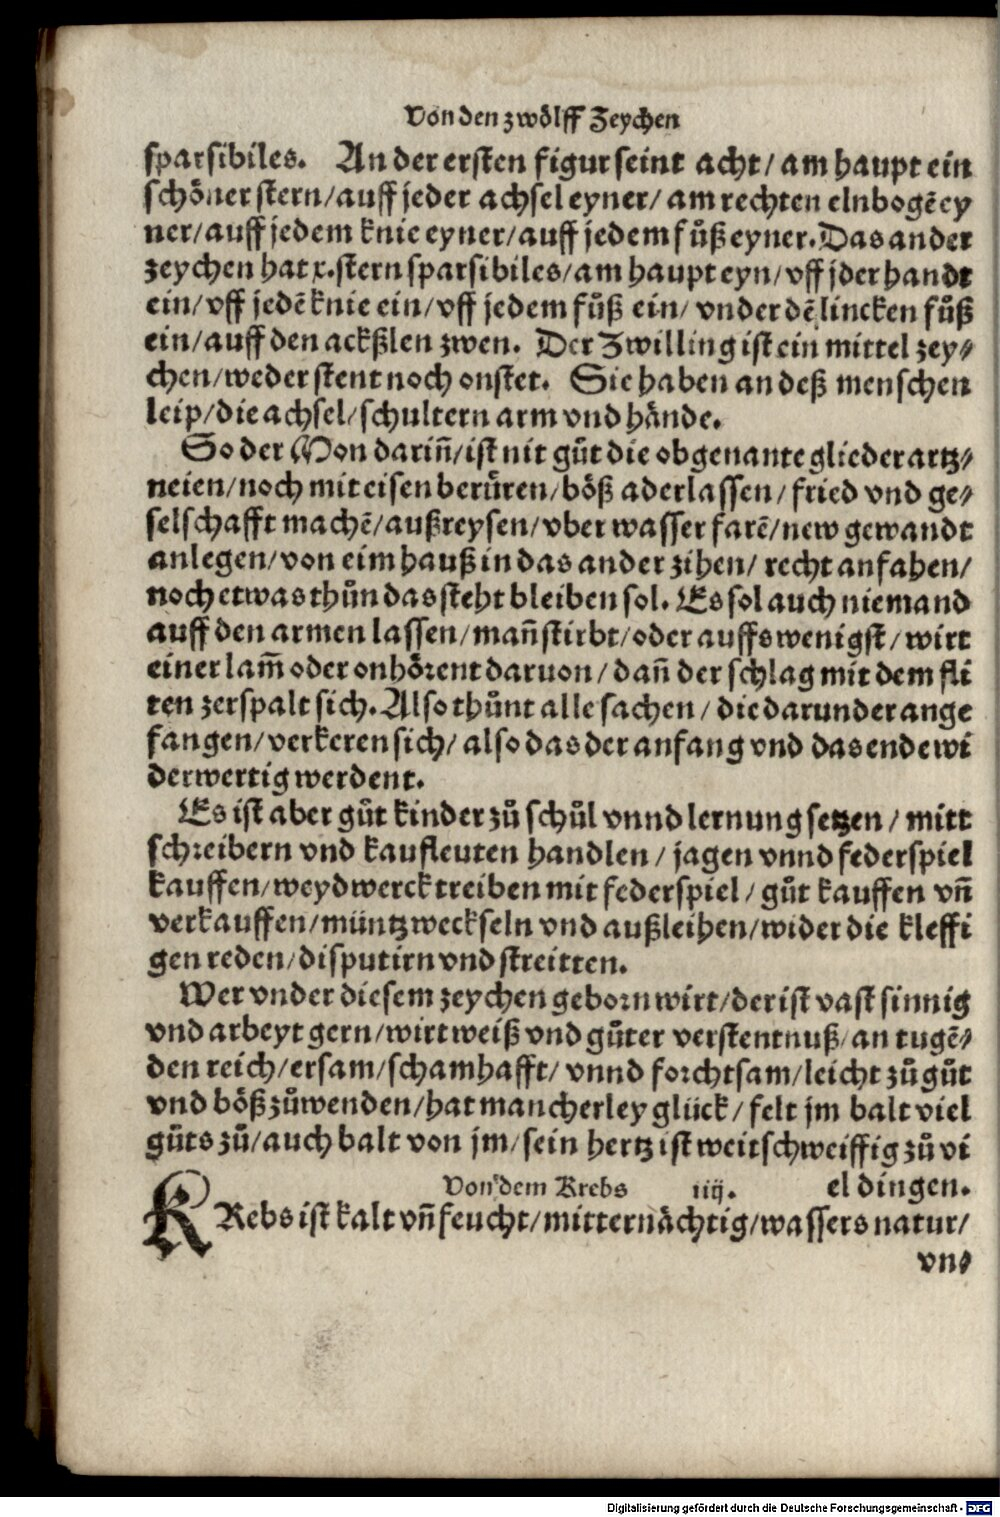 Von den zwölff Zeychen
sparsibiles. An der ersten figur seint acht/ am haupt ein
schöner stern/auff jeder achsel eyner/ am rechten elnbogẽ ey
ner/auff jedem knie eyner/auff jedem fůß eyner. Das ander
zeychen hat x. stern sparsibiles/am haupt eyn/vff jder handt
ein/vff jedẽ knie ein/vff jedem fůß ein/ vnder dẽ lincken fůß
ein/auff den ackßlen zwen. Der Zwilling ist ein mittel zey⸗
chen/weder stent noch onstet. Sie haben an deß menschen
leip/die achsel/schultern arm vnd hände.
So der Mon dariñ/ist nit gůt die obgenante glieder artz⸗
neien/noch mit eisen berůren/böß aderlassen/fried vnd ge⸗
selschafft machẽ/außreysen/vber wasser farẽ/new gewandt
anlegen/von eim hauß in das ander zihen/ recht anfahen/
noch etwas thůn das steht bleiben sol. Es sol auch niemand
auff den armen lassen/mañ stirbt/oder auffs wenigst/wirt
einer lam̃ oder onhörent daruon/ dañ der schlag mit dem fli
ten zerspalt sich. Also thůnt alle sachen/die darunder ange
fangen/verkeren sich/ also das der anfang vnd das ende wi
derwertig werdent.
Es ist aber gůt kinder zů schůl vnnd lernung setzen/mitt
schreibern vnd kaufleuten handlen/ jagen vnnd federspiel
kauffen/weydwerck treiben mit federspiel/gůt kauffen vñ
verkauffen/müntz weckseln vnd außleihen/wider die kleffi
gen reden/disputirn vnd streitten.
Wer vnder diesem zeychen geborn wirt/der ist vast sinnig
vnd arbeyt gern/wirt weiß vnd gůter verstentnuß/an tugẽ⸗
den reich/ersam/schamhafft/ vnnd forchtsam/leicht zů gůt
vnd böß zůwenden/hat mancherley glück/felt jm balt viel
gůts zů/auch balt von jm/sein hertz ist weitschweiffig zů vi
el dingen.
Von dem Krebs iiij.
KRebs ist kalt vñ feucht/mitternächtig/wassers natur/
vn⸗
Digitalisierung gefördert durch die Deutsche Forschungsgemeinschaft - DFG